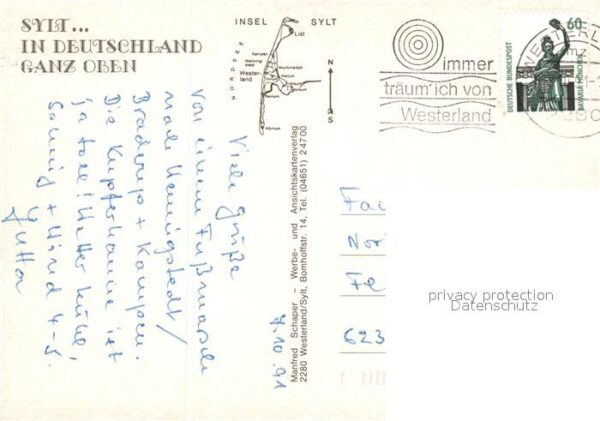 SYLT...
IN DEUTSCHLAND
GANZ OBEN
INSEL SYLT
List
Kampen
Wenningstedt
Westerland
Munkmarsch
Keitum
Hörnum
NORDSEE
N
S
immer
träum' ich von
Westerland
WESTERL
60
DEUTSCHE BUNDESPOST
BAVARIA MÜNCHEN
2280
Manfred Schaper – Werbe- und Ansichtskartenverlag
2280 Westerland/Sylt, Bomhoffstr. 14, Tel. (04651) 24700
7.10.91
Viele Grüße
von einem Fußmarsch
nach Wenningstedt/
Braderup + Kampen.
Die Kupferkanne ist
ja toll! Wetter kühl,
Sonnig + Wind 4-5.
Jutta
Fa
Nor
Fe
623
privacy protection
Datenschutz